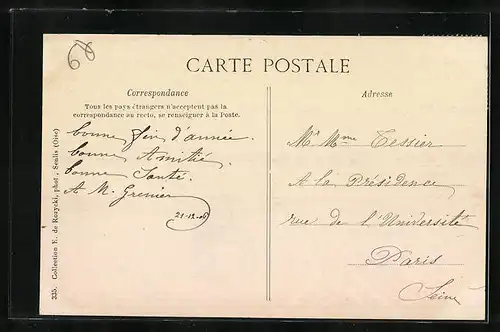 60
CARTE POSTALE
Correspondance
Tous les pays étrangers n'acceptent pas la
correspondance au recto, se renseigner à la Poste.
bonne fin d'année.
bonne Amitié.
bonne Santé.
A M. Grenier
21-12-06
Adresse
Mr Mme Tessier
A la Présidence
rue de l'Université
Paris
Seine
335. Collection E. de Rozycki, phot., Senlis (Oise)